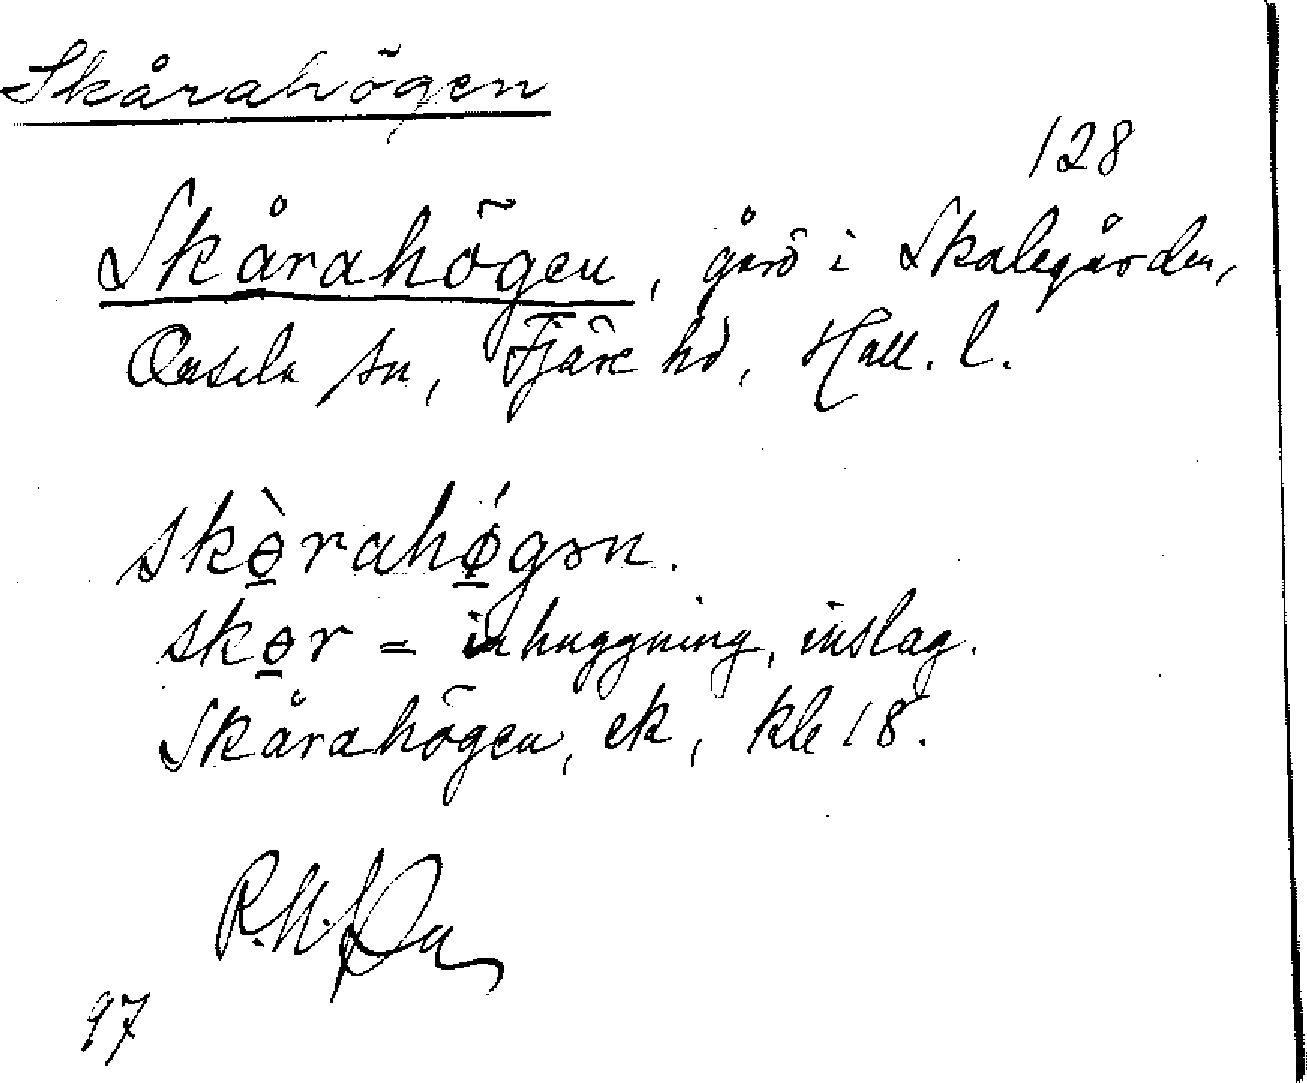 Skårahögen
128
Skårahögen, gård i Skalegården,
Onsala sn, Fjäre hd, Hall. l.
skɵ̀rahǿgən.
skɵr = inhuggning, inslag.
Skårahögen, ek, kle 18.
97